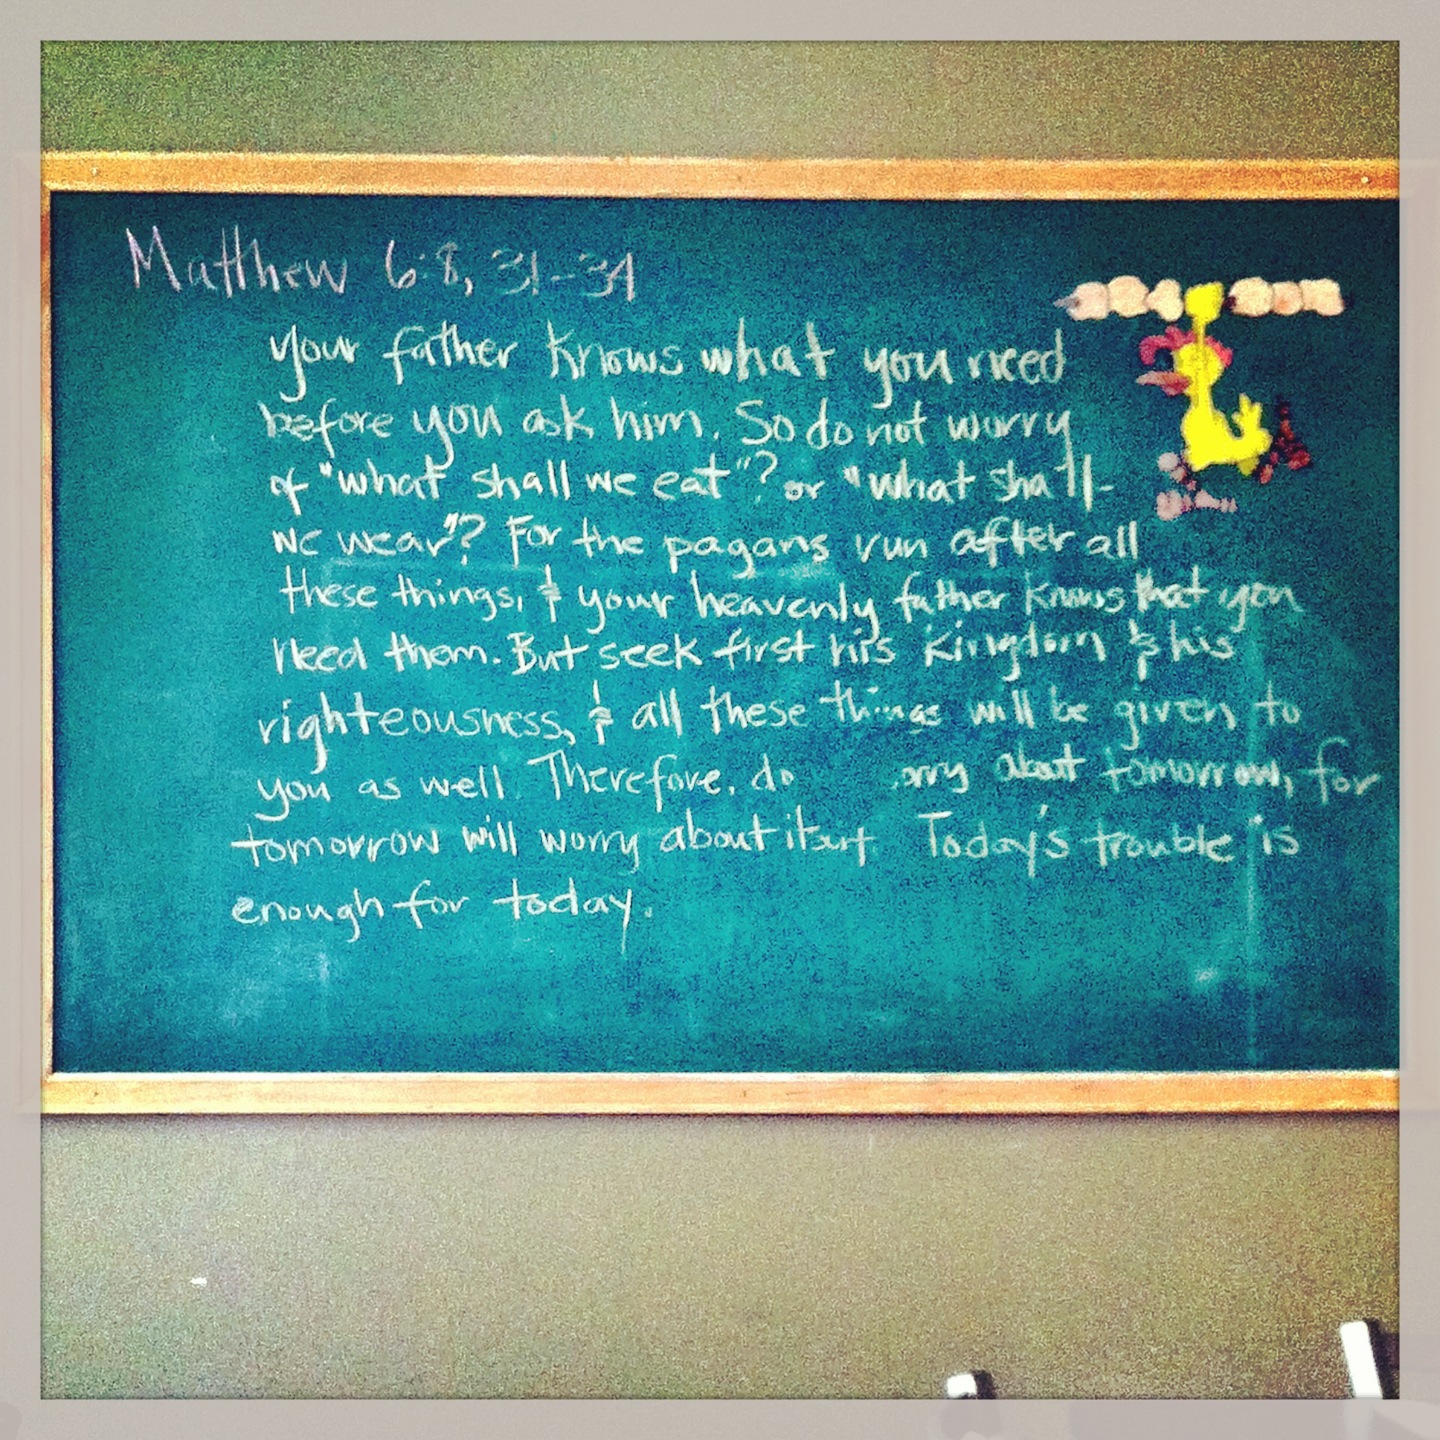 Matthew 6:8, 31-34
your father knows what you need
before you ask him. So do not worry
of "what shall we eat"? or "what shall
we wear"? For the pagans run after all
these things, & your heavenly father knows that you
need them. But seek first his kingdom & his
righteousness, & all these things will be given to
you as well. Therefore, do orry about tomorrow, for
tomorrow will worry about itself. Today's trouble is
enough for today.